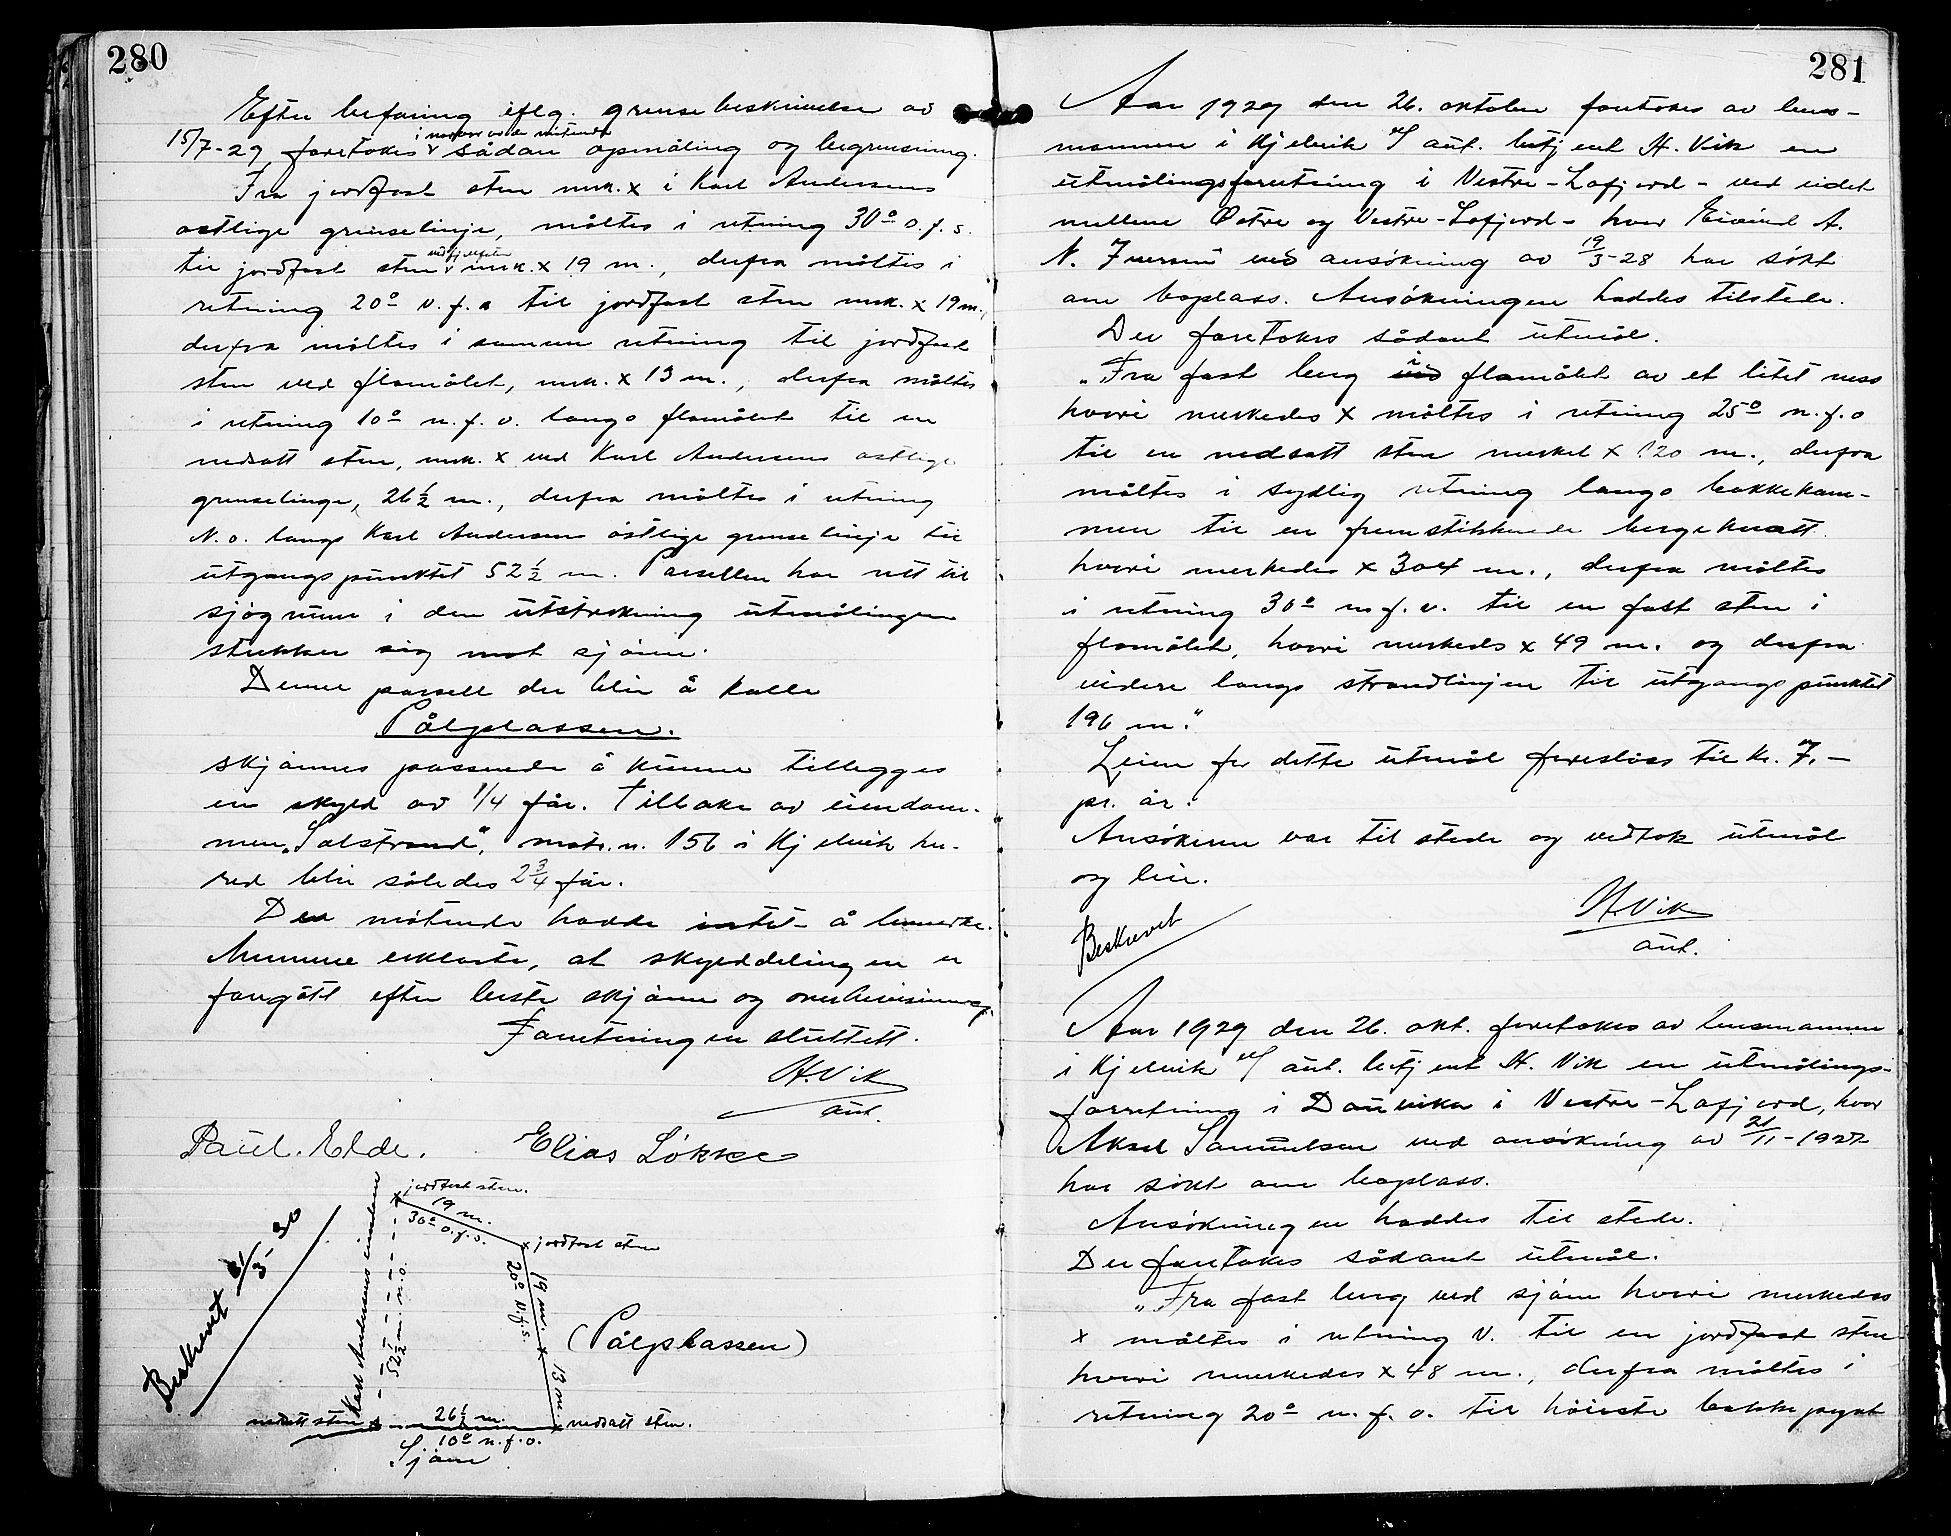 280
Efter befaring iflg. grensebeskrivelse av
i nærvær av de møtende
15/7-29, foretokes sådan opmåling og begrensning.
Fra jordfast sten mrk. x i Karl Andersens
østlige grenselinje, måltes i retning 30° o.f.s.
til jordfast sten mrk. x 19 m., derfra måltes i
retning 20° v.f.s til jordfast sten mrk. x 19 m.,
derfra måltes i samme retning til jordfast
sten ved flomålet, mrk. x 13 m., derfra måltes
i retning 10° n.f.v. langs flomålet til en
nedsatt sten, mrk. x ved Karl Andersens østlige
grenselinge, 26 1/2 m., derfra måltes i retning
N.o. langs Karl Andersens østlige grenselinje til
utgangspunktet 52 1/2 m. Parsellen har rett til
sjøgrunn i den utstrekning utmålingen
strekker sig mot sjøen.
Denne parsell der blir å kalle
Pålsplassen.
skjønnes passende å kunne tillegges
en skyld av 1/4 får. Tilbake av eiendom-
men „Solstrand", matr. n. 156 i Kjelvik her-
red blir således 2 3/4 får.
De møtende hadde intet å bemerke.
Mennene erklærte, at skylddelingen er
foregått efter beste skjønn og overbevisning.
Forretningen sluttett.
H. Vik
aut.
Paul. Elde. Elias Løkke
Beskrevet 21/3-30
Karl Andersens eiendom
52 1/2 m. n.o.
jordfast sten.
19 m.
30° o.f.s.
jordfast sten
19 m.
20° v.f.s.
13 m.
(Pålsplassen)
nedsatt sten
26 1/2 m.
nedsatt sten.
10° n.f.o.
Sjøen
281
Aar 1929 den 26. oktober foretokes av lens-
mannen i Kjelvik v/ aut. betjent H. Vik en
utmålingsforretning i Vestre-Lafjord - ved eidet
mellem Østre og Vestre-Lafjord - hvor Eivind A.
N. Iversen ved ansøkning av 19/3-28 har søkt
om boplass. Ansøkningen haddes tilstede.
Der foretokes sådant utmål.
„Fra fast berg i flomålet av et litet ness
hvori merkedes x måltes i retning 25° n.f.o
til en nedsatt sten merket x 120 m., derfra
måltes i sydlig retning langs bakkekam-
men til en fremstikkende bergknatt
hvori merkedes x 304 m., derfra måltes
i retning 30° n.f.v. til en fast sten i
flomålet, hvori merkeds x 49 m. og derfra
videre langs strandlinjen til utgangspunktet
196 m."
Leien for dette utmål foreslåes til kr. 7,-
pr. år.
Ansøkeren var til stede og vedtok utmål
og leie.
H. Vik
aut.
Beskrevet
Aar 1929 den 26. okt. foretokes av lensmannen
i Kjelvik v/ aut. betjent H. Vik en utmålings-
forretning i Dauvika i Vestre-Lafjord, hvor
Aksel Samuelsen ved ansøkning av 21/11-1927
har søkt om boplass.
Ansøkningen haddes til stede.
Der foretokes sådant utmål.
„Fra fast berg ved sjøen hvori merkedes
x måltes i retning V. til en jordfast sten
hvori merkedes x 48 m., derfra måltes i
retning 20° n.f.o. til høieste bakkepynt